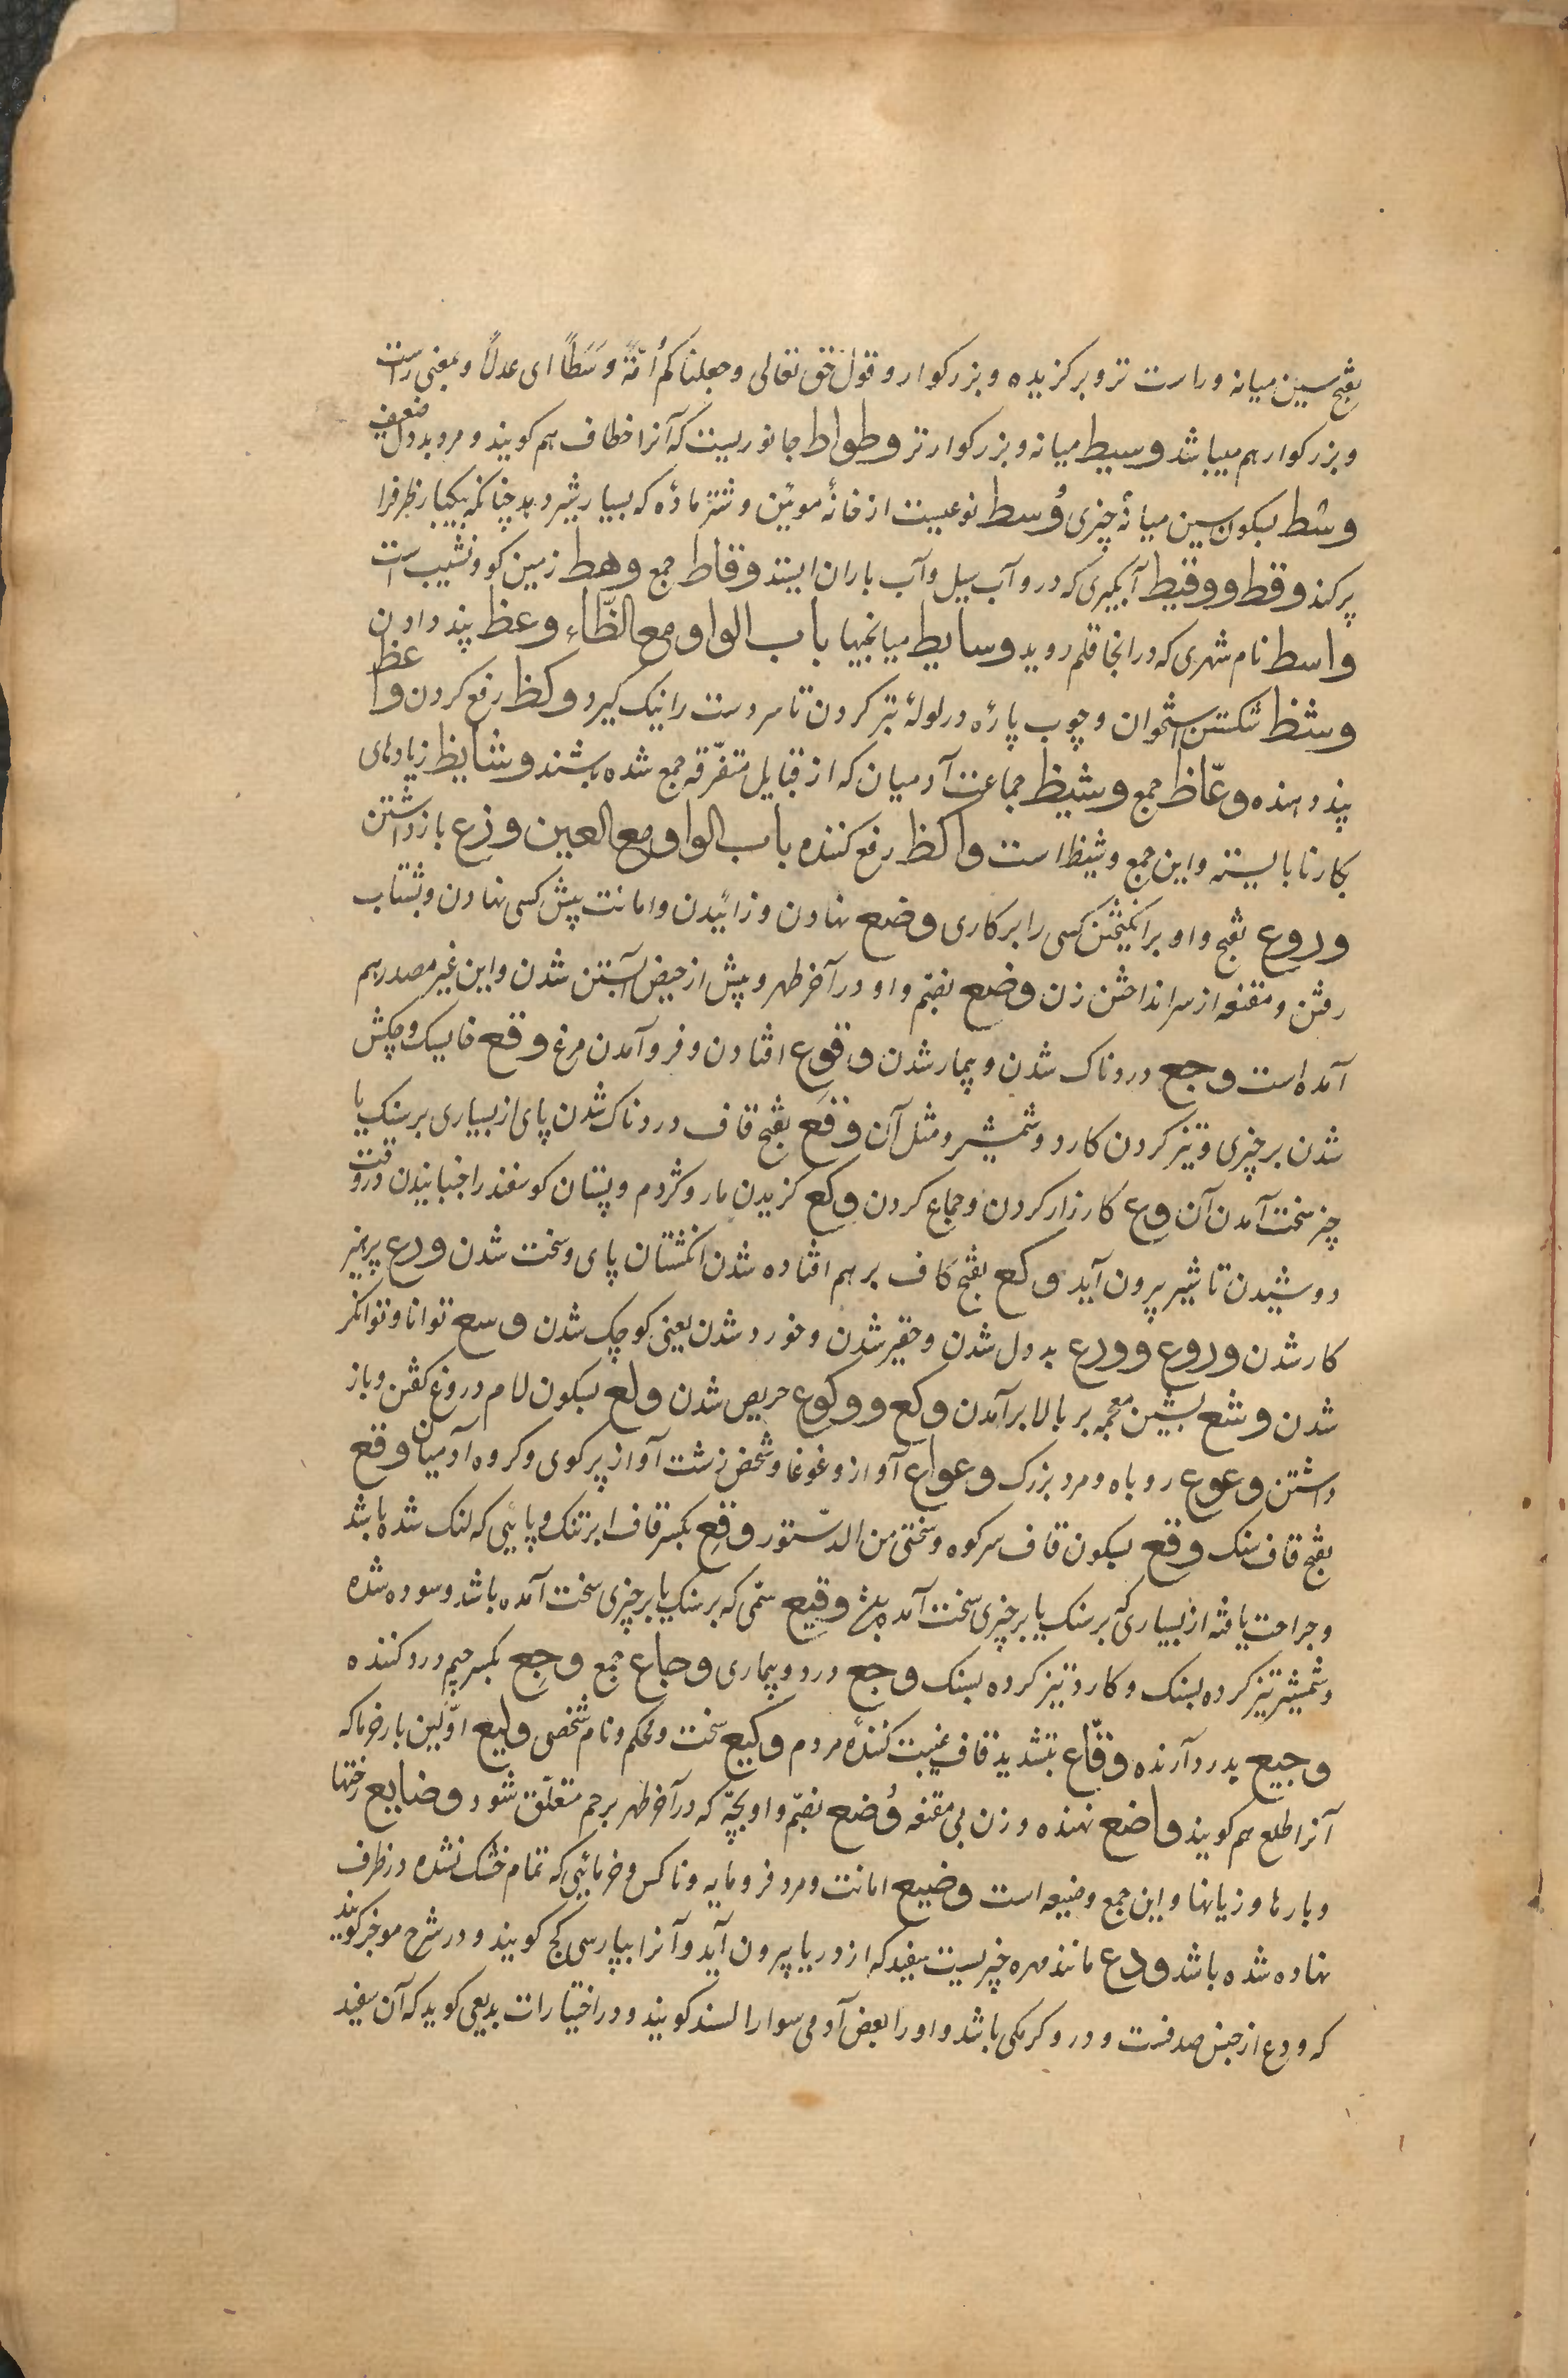 بفتح سین میانه و راست تر و برکزیده و بزرکوار و قول حق تعالی وجعلناکم اُمّةً وسَطاً ای عدلاً و بمعنی راست
و بزرکوار هم میباشد وسیط میانه و بزرکوارتر وطواط جانوریست که آنرا خطاف هم کویند و مرد بددل ضعیف
وسط بسکون سین میانهٔ چیزی وُسط نوعیست از خانهٔ موئین و شتر مادهٔ که بسیار شیر دهد چنانکه بیکبار ظرفرا
پر کند وقط و وقیط آبکیری که درو آب سیل و آب باران ایستد وقاط جمع وهط زمین کو و نشیب است
واسط نام شهری که در انجا قلم روید وسایط میانجیها باب الواو مع الظّاء وعظ پند دادن
وشظ شکستن استخوان و چوب پارهٔ در لولهٔ تبر کردن تا سر دست را نیک کیرد وکظ رفع کردن واعظ
پند دهنده وعّاظ جمع وشیظ جماعت آدمیان که از قبایل متفرّقه جمع شده باشند وشایظ زیادهای
بکار نابایسته و این جمع وشیظ است واکظ رفع کننده باب الواو مع العین وزع بازداشتن
وروع بفتح واو برانکیختن کسی را بر کاری وضع نهادن و زائیدن و امانت پیش کسی نهادن و بشتاب
رفتن و مقنعه از سر انداختن زن وضع بضمّ واو در آخر طهر و پیش از حیض آبستن شدن و این غیر مصدر هم
آمده است وجع دردناک شدن و بیمار شدن وقوع افتادن و فرو آمدن مرغ وقع خایسک و چکش
شدن بر چیزی و تیز کردن کارد و شمشیر و مثل آن وقَع بفتح قاف دردناک شدن پای از بسیاری بر سنک یا
چیز سخت آمدن آن وع کارزار کردن و جماع کردن وکع کزیدن مار و کژدم و پستان کوسفند را جنبانیدن در وقت
دوشیدن تا شیر بیرون آید وکع بفتح کاف بر هم افتاده شدن انکشتان پای و سخت شدن ورع پرهیز
کار شدن وروع و ورع بددل شدن و حقیر شدن و خورد شدن یعنی کوچک شدن وسع توانا و توانکر
شدن وشع بشین معجمه بر بالا برآمدن وکع و وکوع حریص شدن ولع بسکون لام دروغ کفتن و باز
داشتن وعوع روباه و مرد بزرک وعواع آواز و غوغا و شخص زشت آواز پر کوی و کروه آدمیان وقع
بفتح قاف سنک وقع بسکون قاف سر کوه و سختی من الدّستور وقع بکسر قاف ابر تنک و پائی که لنک شده باشد
و جراحت یافته از بسیاری که بر سنک یا بر چیزی سخت آمده باشد وقیع سمّی که بر سنک یا بر چیزی سخت آمده باشد و سوده شده
و شمشیر تیز کرده بسنک و کارد تیز کرده بسنک وجع درد و بیماری وجاع جمع وجِع بکسر جیم درد کننده
وجیع بدرد آرنده وقّاع بتشدید قاف غیبت کنندهٔ مردم وکیع سخت و محکم و نام شخصی ولیع اوّلین بار خرما که
آنرا طلع هم کویند واضع نهنده و زن بی مقنعه وُضع بضمّ واو بچّه که در آخر طهر برحم متعلّق شود وضایع رختها
و بارها و زیانها و این جمع وضیعه است وضیع امانت و مرد فرومایه و ناکس و خرمائی که تمام خشک نشده در ظرف
نهاده شده باشد ودع مانند مهره چیزیست سفید که از دریا بیرون آید و آنرا بپارسی کج کویند و در شرح موجز کویند
که ودع از جنس صدفست و درو کرمکی باشد و او را بعض آدمی سوار السند کویند و در اختیارات بدیعی کوید که آن سفید